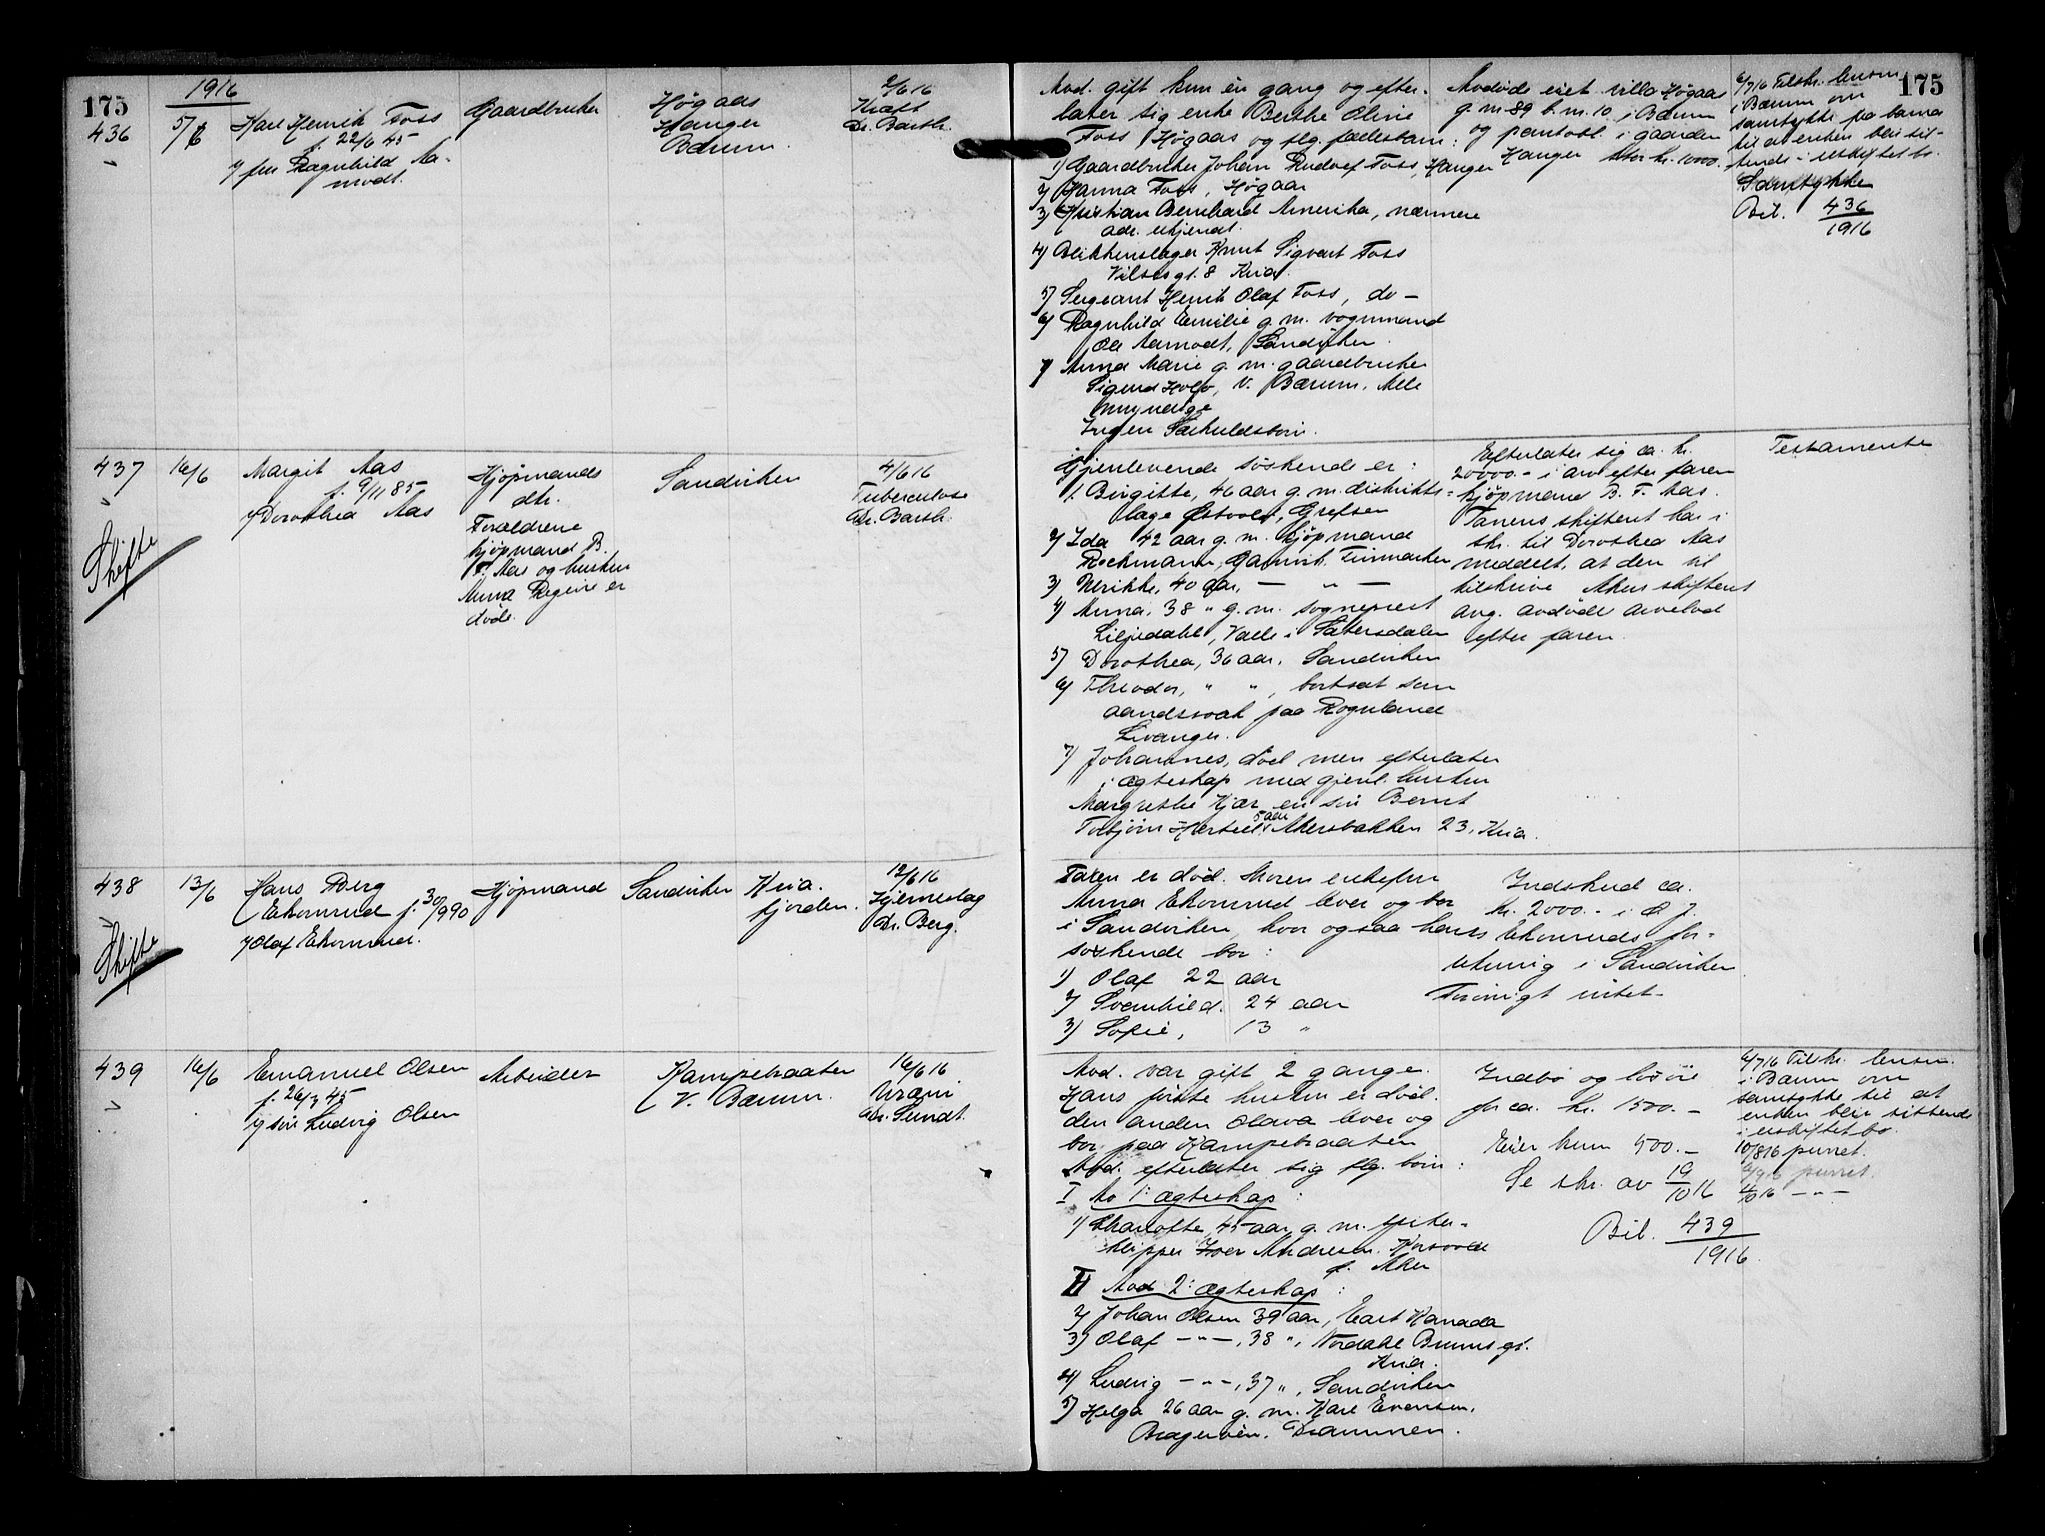 175
1916
436
5/6
Karl Henrik Foss
f. 22/6 45
v/ fru Ragnhild Aa-
modt.
Gaardbruker
Høgaas
Hanger
Bærum.
2/6 16
Kræft
Dr. Barth.
Avd. gift kun én gang og efter-
later sig enke Berthe Oline
Foss Høgaas og flg. fællesbarn:
1) Gaardbruker Johan Rudolf Foss, Hanger
2) Hanna Foss, Høgaas
3) Kristian Bernhard Amerika, nærmere
adr. ukjendt.
4) Blikkenslager Knut Sigvart Foss
Vilsesgt. 8 Kria.
5) Sergeant Henrik Olaf Foss, do —
6) Ragnhild Emilie g. m. vognmand
Ole Aamodt, Sandviken.
7) Anna Marie g. m. gaardbruker
Sigurd Holo, V. Bærum. Alle
myndige
Ingen Særkuldsbørn.
Avdøde eiet villa Høgaas
g. nr 89 b. nr. 10 i Bærum
og pantobl. i gaarden
Hanger stor kr. 1000.
6/7 16 Tilskr. lensm.
i Bærum om
samtykke fra barna
til at enken blir sit-
tende i uskiftet bo.
Samtykke
Bil. 436
1916
175
437
16/6
Skifte
Margit Aas
f. 9/11 85
v/ Dorothea Aas
Kjøpmands
dtr.
Forældrene
kjøpmand B.
F. Aas og hustru
Anna Regine er
døde.
Sandviken
4/6 16
Tuberculose
Dr. Barth.
Gjenlevende søskende er:
1. Birgitte, 46 aar g. m. distrikts-
læge Østvold, Grefsen
2) Ida 42 aar g. m. kjøpmand
Rockmann, Gamvik, Finmarken
3) Ulrikke, 40 aar, — " —
4) Anna, 38 " g. m. sogneprest
Liljedahl, Valle i Sætersdalen
5) Dorothea, 36 aar. Sandviken
6) Theodor, " ", bortsat som
aandssvak paa Rognland
Levanger.
7) Johannes, død men efterlater
i ægteskap med gjenl. hustru
Margrethe Kjær en søn Bernt
Torbjørn Hersleb 5 aar Akersbakken 23, Kria.
Efterlater sig ca. kr.
20000.- i arv efter faren
kjøpmand B. F. Aas.
Tanens skifteret har i
skr. til Dorothea Aas
meddelt, at den vil
tilskrive Akers skifteret
ang. avdødes arvelod
efter faren.
Testamente
438
13/6
Skifte
Hans Berg
Ekornrud f. 30/9 90
v/ Olaf Ekornrud.
Kjøpmand
Sandviken
Kria.
fjorden.
12/6 16
Hjerneslag
Dr. Berg.
Faren er død. Moren enkefru
Anna Ekornrud lever og bor
i Sandviken, hvor ogsaa hans
søskende bor:
1) Olaf 22 aar
2) Svanhild. 24 aar
3) Sofie, 13 "
Indskud ca.
kr. 2000.- i O. J.
Ekornruds for-
retning i Sandviken
Forøvrigt intet-
439
16/6
Emanuel Olsen
f. 26/3 45
v/ søn Ludvig Olsen
Arbeider
Kampebraaten
V. Bærum.
16/6 16
Uræmi
Dr. Sundt.
Avd. var gift 2 gange.
Hans første hustru er død.
den anden Olava lever og
bor paa Kampebraaten
Avd. efterlater sig flg. børn:
I Av 1: ægteskap:
1) Charlotte 45 aar g. m.
Iver Andresen. Korsvold
p. Aker
II Avd 2: ægteskap:
2) Johan Olsen 39 aar, East Kanada
3) Olaf — " —, 38 ", Nordahl Brunsgt.
Kria.
4) Ludvig — " —, 37 ", Sandviken
5) Helga 26 aar g. m. Karl Evensen,
Bragerøen. Drammen.
Indbo og løsøre
for ca. kr. 1500.—
Eier kun 500.—
Se skr. av 19/10 16
Bil. 439
1916
6/7 16 Tilskr. lensm.
i Bærum om
samtykke til at
enken blir sittende
i uskiftet bo.
10/8 16 purret.
6/9 16 purret.
4/10 16 — " —